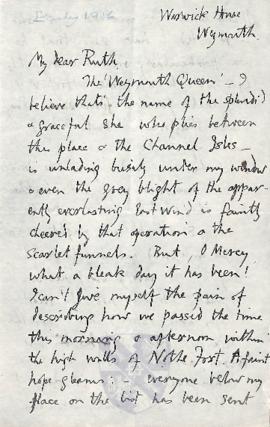 Warwick House
Weymouth
My dear Ruth
The 'Weymouth Queen' – I
believe that's the name of the splendid
& graceful she who plies between
this place & the Channel Isles –
is unlading busily under my window
& even the grey blight of the appar-
ently everlasting East Wind is faintly
cheered by that operation & the
scarlet funnels. But, O Mercy
what a bleak day it has been!
I can't give myself the pain of
describing how we passed the time
this morning & afternoon within
the high walls of Nothe Fort. A faint
hope gleams: – everyone below my
place on the list has been sent